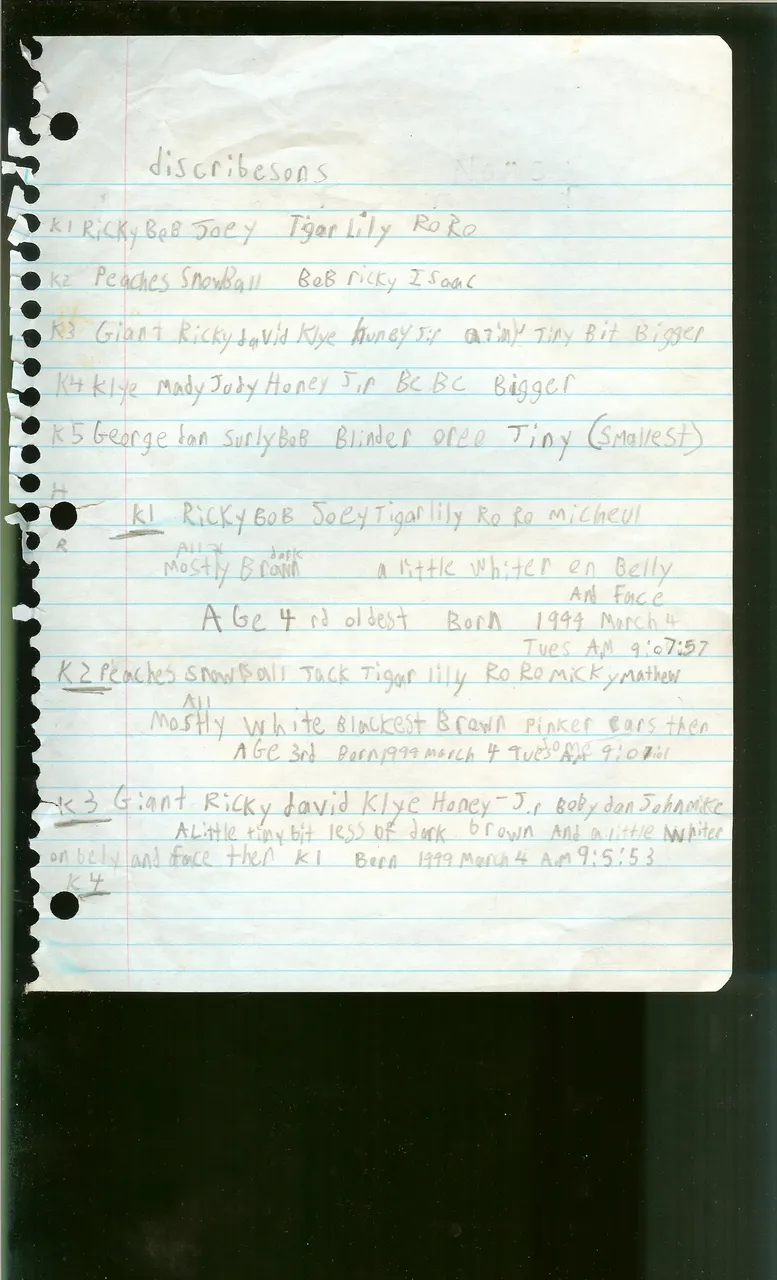 discribesons
K1 Ricky BoB Joey Tigar Lily RoRo
K2 Peaches SnowBall BoB ricky Isaac
K3 Giant Ricky david Klye huney Jir a tiny Tiny Bit Bigger
K4 Klye Mady Jody Honey Jir BC BC Bigger
K5 George dan SurlyBoB Blinder oreo Tiny (Smallest)
H
K1 Ricky BoB Joey Tigar lily Ro Ro micheul
R
All dark
mostly Brown a little whiter on Belly
And Face
AGe 4 rd oldest Born 1999 March 4
Tues AM 9:07:57
K2 Peaches SnowBall Jack Tigar lily Ro Ro micky mathew
All
Mostly white Blackest Brown pinker ears then
AGe 3rd Born 1999 march 4 Tues
K3 Giant Ricky david Klye Honey-J.r Boby dan John mike
A Little tiny bit less of dark brown And a little whiter
on bely and face then K1 Born 1999 March 4 A.M 9:5:53
K4